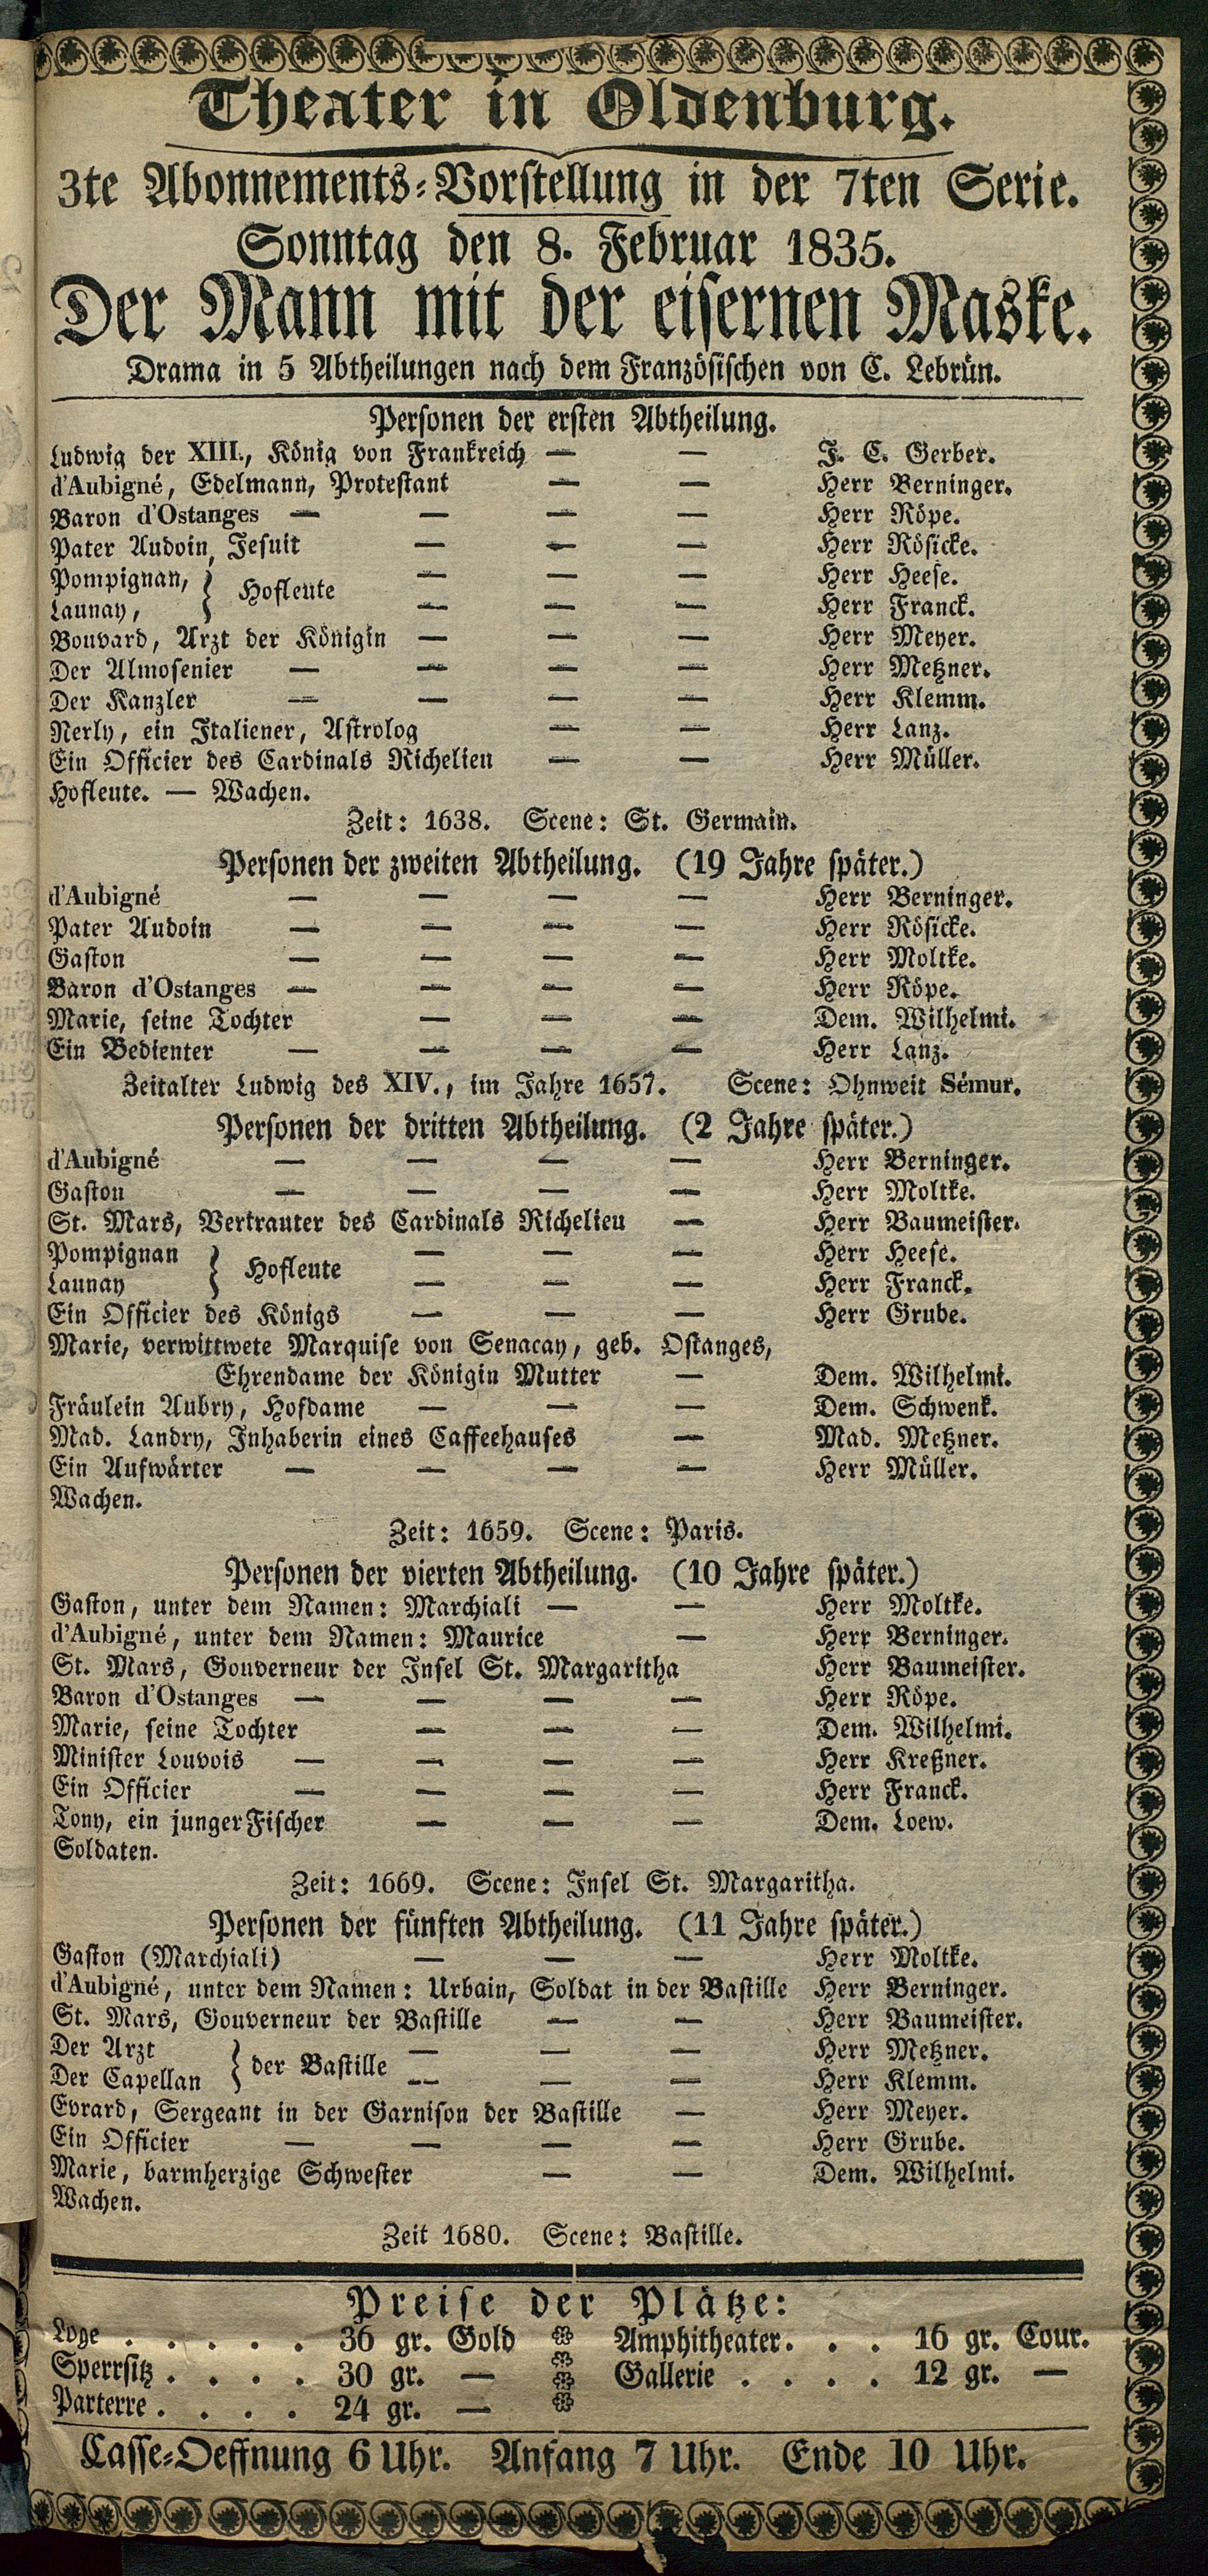 Theater in Oldenburg.
3te Abonnements-Vorstellung in der 7ten Serie.
Sonntag den 8. Februar 1835.
Der Mann mit der eisernen Maske.
Drama in 5 Abtheilungen nach dem Französischen von C. Lebrün.
Personen der ersten Abtheilung.
Ludwig der XIII., König von Frankreich — — J. C. Gerber.
d'Aubigné, Edelmann, Protestant — — Herr Berninger.
Baron d'Ostanges — — — — Herr Röpe.
Pater Audoin, Jesuit — — — Herr Rösicke.
Pompignan, } Hofleute — — — Herr Heese.
Launay, — — — Herr Franck.
Bouvard, Arzt der Königin — — — Herr Meyer.
Der Almosenier — — — — Herr Metzner.
Der Kanzler — — — — Herr Klemm.
Nerly, ein Italiener, Astrolog — — Herr Lanz.
Ein Officier des Cardinals Richelieu — — Herr Müller.
Hofleute. — Wachen.
Zeit: 1638. Scene: St. Germain.
Personen der zweiten Abtheilung. (19 Jahre später.)
d'Aubigné — — — — Herr Berninger.
Pater Audoin — — — — Herr Rösicke.
Gaston — — — — Herr Moltke.
Baron d'Ostanges — — — — Herr Röpe.
Marie, seine Tochter — — — Dem. Wilhelmi.
Ein Bedienter — — — — Herr Lanz.
Zeitalter Ludwig des XIV., im Jahre 1657. Scene: Ohnweit Sémur.
Personen der dritten Abtheilung. (2 Jahre später.)
d'Aubigné — — — — Herr Berninger.
Gaston — — — — Herr Moltke.
St. Mars, Vertrauter des Cardinals Richelieu — Herr Baumeister.
Pompignan } Hofleute — — — Herr Heese.
Launay — — — Herr Franck.
Ein Officier des Königs — — — Herr Grube.
Marie, verwittwete Marquise von Senacay, geb. Ostanges,
Ehrendame der Königin Mutter — Dem. Wilhelmi.
Fräulein Aubry, Hofdame — — — Dem. Schwenk.
Mad. Landry, Inhaberin eines Caffeehauses — Mad. Metzner.
Ein Aufwärter — — — — Herr Müller.
Wachen.
Zeit: 1659. Scene: Paris.
Personen der vierten Abtheilung. (10 Jahre später.)
Gaston, unter dem Namen: Marchiali — — Herr Moltke.
d'Aubigné, unter dem Namen: Maurice — Herr Berninger.
St. Mars, Gouverneur der Insel St. Margaritha Herr Baumeister.
Baron d'Ostanges — — — — Herr Röpe.
Marie, seine Tochter — — — Dem. Wilhelmi.
Minister Louvois — — — — Herr Kreßner.
Ein Officier — — — — Herr Franck.
Tony, ein junger Fischer — — — Dem. Loew.
Soldaten.
Zeit: 1669. Scene: Insel St. Margaritha.
Personen der fünften Abtheilung. (11 Jahre später.)
Gaston (Marchiali) — — — Herr Moltke.
d'Aubigné, unter dem Namen: Urbain, Soldat in der Bastille Herr Berninger.
St. Mars, Gouverneur der Bastille — — Herr Baumeister.
Der Arzt } der Bastille — — — Herr Metzner.
Der Capellan — — — Herr Klemm.
Evrard, Sergeant in der Garnison der Bastille — Herr Meyer.
Ein Officier — — — — Herr Grube.
Marie, barmherzige Schwester — — Dem. Wilhelmi.
Wachen.
Zeit 1680. Scene: Bastille.
Preise der Plätze:
Loge . . . . . 36 gr. Gold Amphitheater. . . 16 gr. Cour.
Sperrsitz . . . . 30 gr. — Gallerie . . . . 12 gr. —
Parterre . . . . 24 gr. —
Casse-Oeffnung 6 Uhr. Anfang 7 Uhr. Ende 10 Uhr.